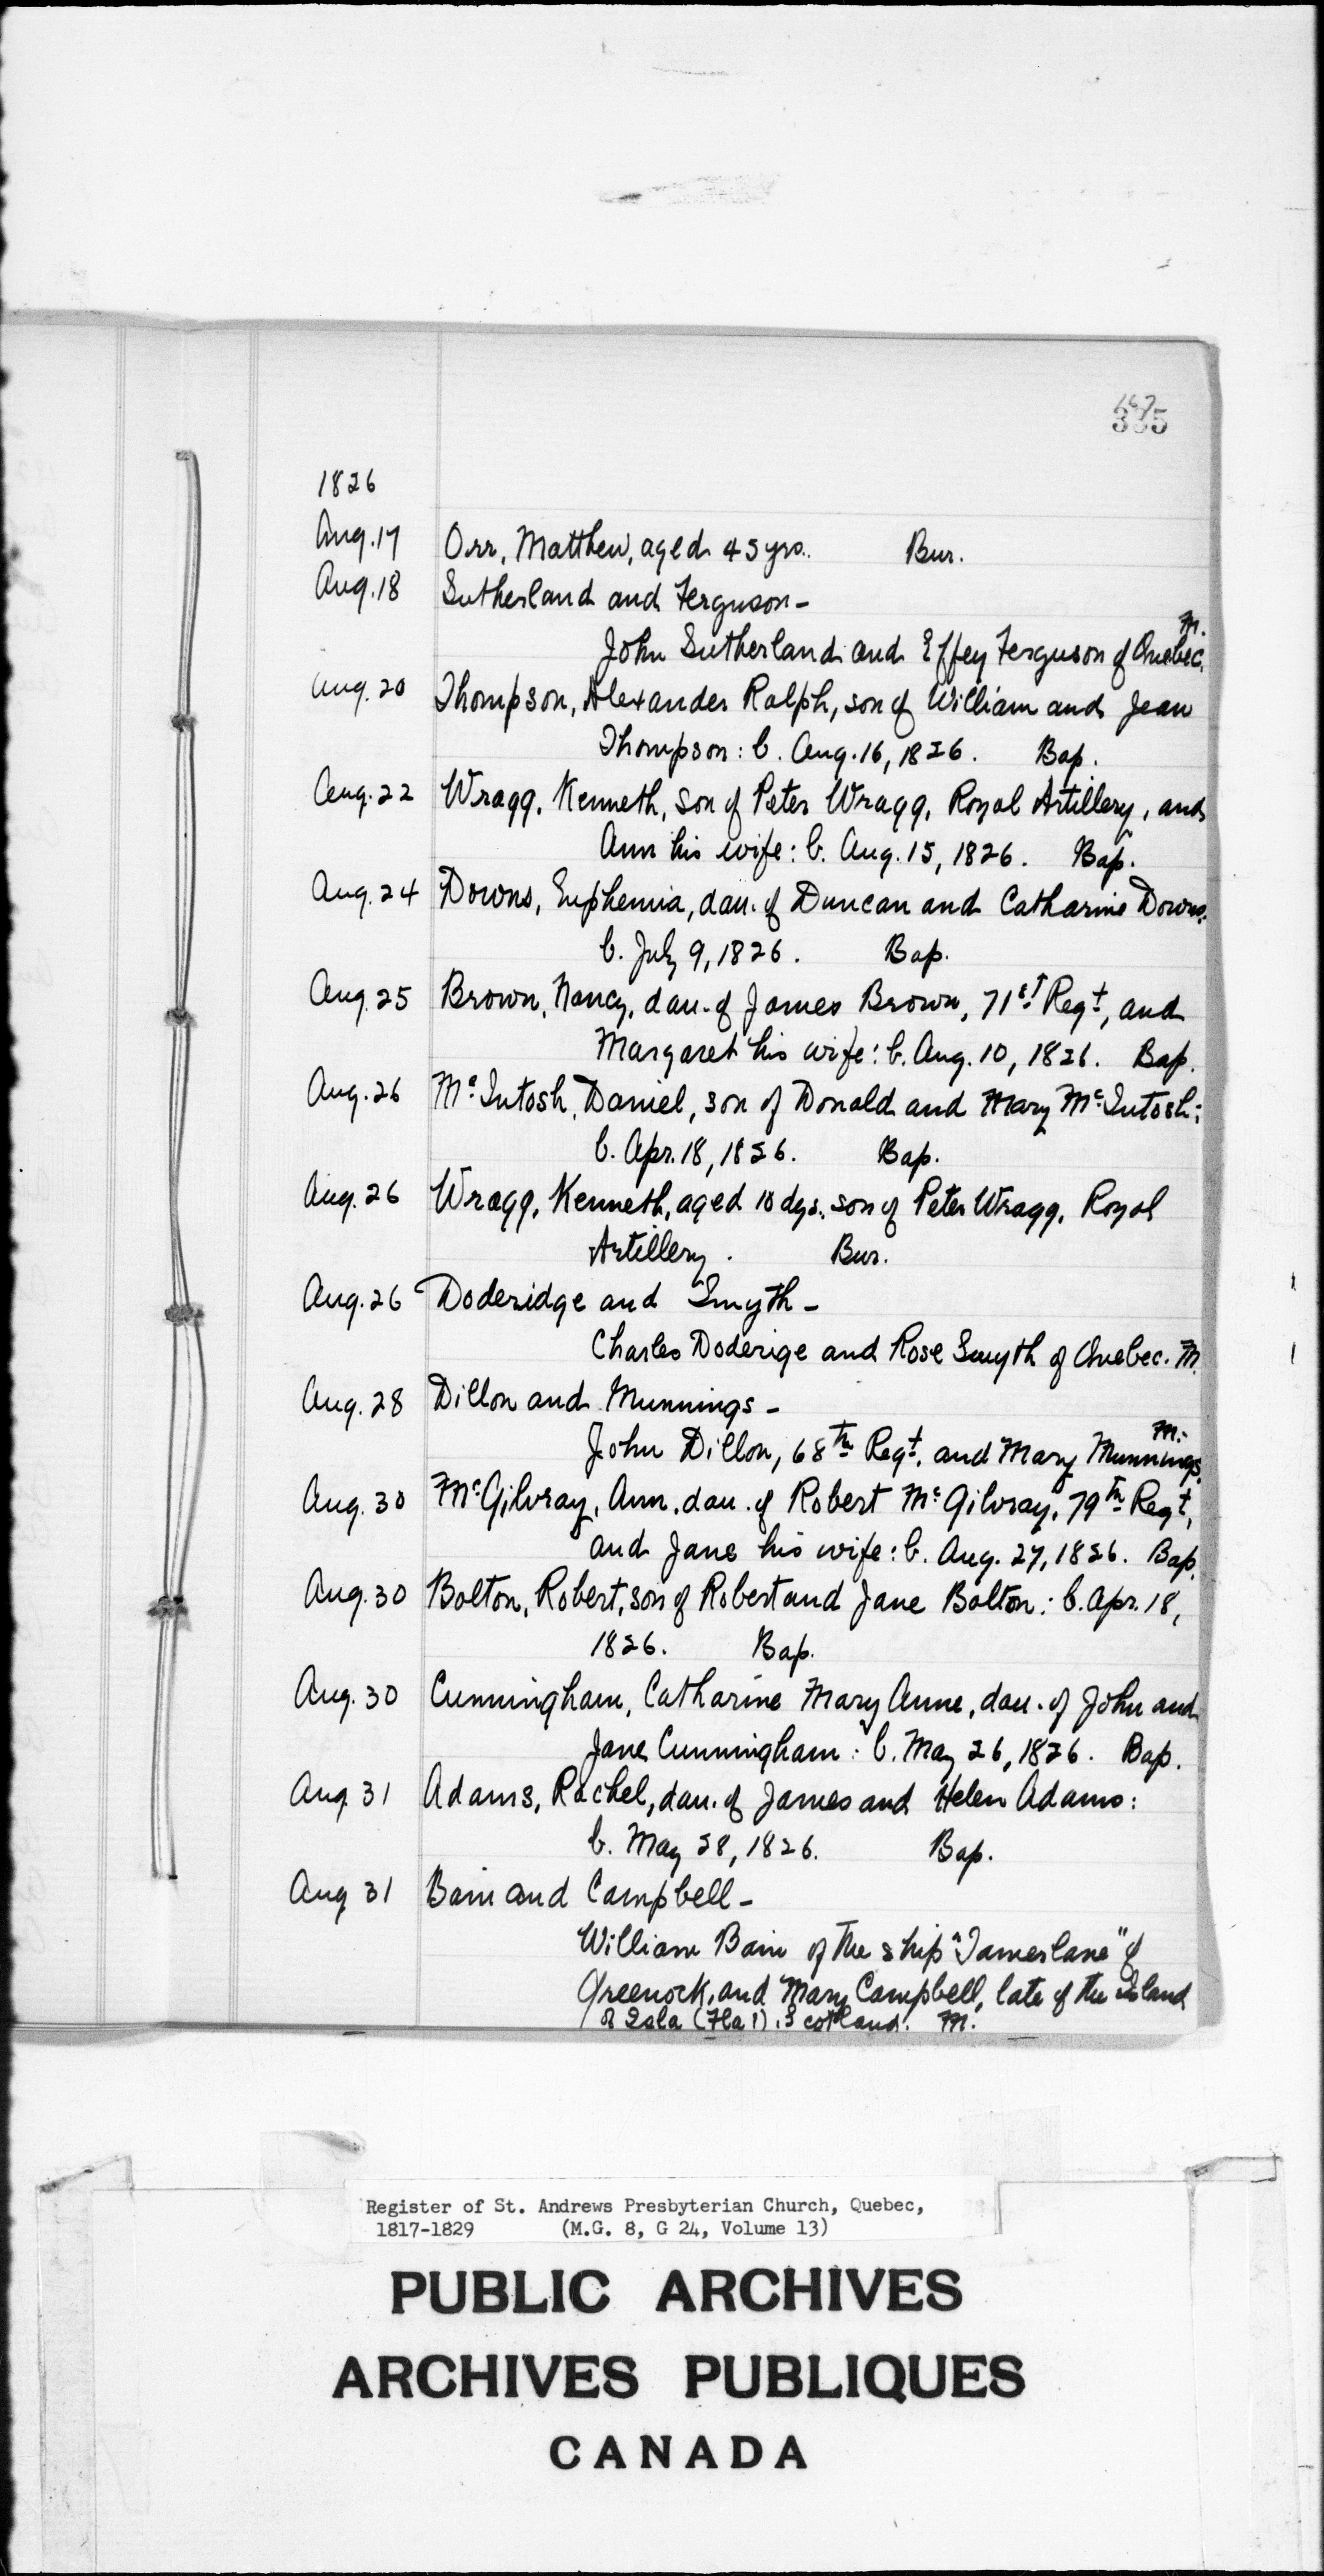 167
335
1826
Aug. 17 Orr, Matthew, aged 45 yrs. Bur.
Aug. 18 Sutherland and Ferguson-
M.
John Sutherland and Effey Ferguson of Quebec.
Aug. 20 Thompson, Alexander Ralph, son of William and Jean
Thompson: b. Aug. 16, 1826. Bap.
Aug. 22 Wragg, Kenneth, son of Peter Wragg, Royal Artillery, and
Ann his wife: b. Aug. 15, 1826. Bap.
Aug. 24 Downs, Euphemia, dau. of Duncan and Catharine Downs:
b. July 9, 1826. Bap.
Aug. 25 Brown, Nancy, dau. of James Brown, 71st Regt, and
Margaret his wife: b. Aug. 10, 1826. Bap.
Aug. 26 McIntosh, Daniel, son of Donald and Mary McIntosh:
b. Apr. 18, 1826. Bap.
Aug. 26 Wragg, Kenneth, aged 10 dys., son of Peter Wragg, Royal
Artillery. Bur.
Aug. 26 Doderidge and Smyth-
Charles Doderige and Rose Smyth of Quebec. M.
Aug. 28 Dillon and Munnings-
M.
John Dillon, 68th Regt. and Mary Munnings.
Aug. 30 McGilvray, Ann, dau. of Robert McGilvray, 79th Regt,
and Jane his wife: b. Aug. 27, 1826. Bap.
Aug. 30 Bolton, Robert, son of Robert and Jane Bolton: b. Apr. 18,
1826. Bap.
Aug. 30 Cunningham, Catharine Mary Anne, dau. of John and
Jane Cunningham: b. May 26, 1826. Bap.
Aug 31 Adams, Rachel, dau. of James and Helen Adams:
b. May 28, 1826. Bap.
Aug 31 Bain and Campbell-
William Bain of the ship "Tamerlane" of
Greenock, and Mary Campbell, late of the Island
of Scotland. M.
Register of St. Andrews Presbyterian Church, Quebec,
1817-1829 (M.G. 8, G 24, Volume 13)
PUBLIC ARCHIVES
ARCHIVES PUBLIQUES
CANADA